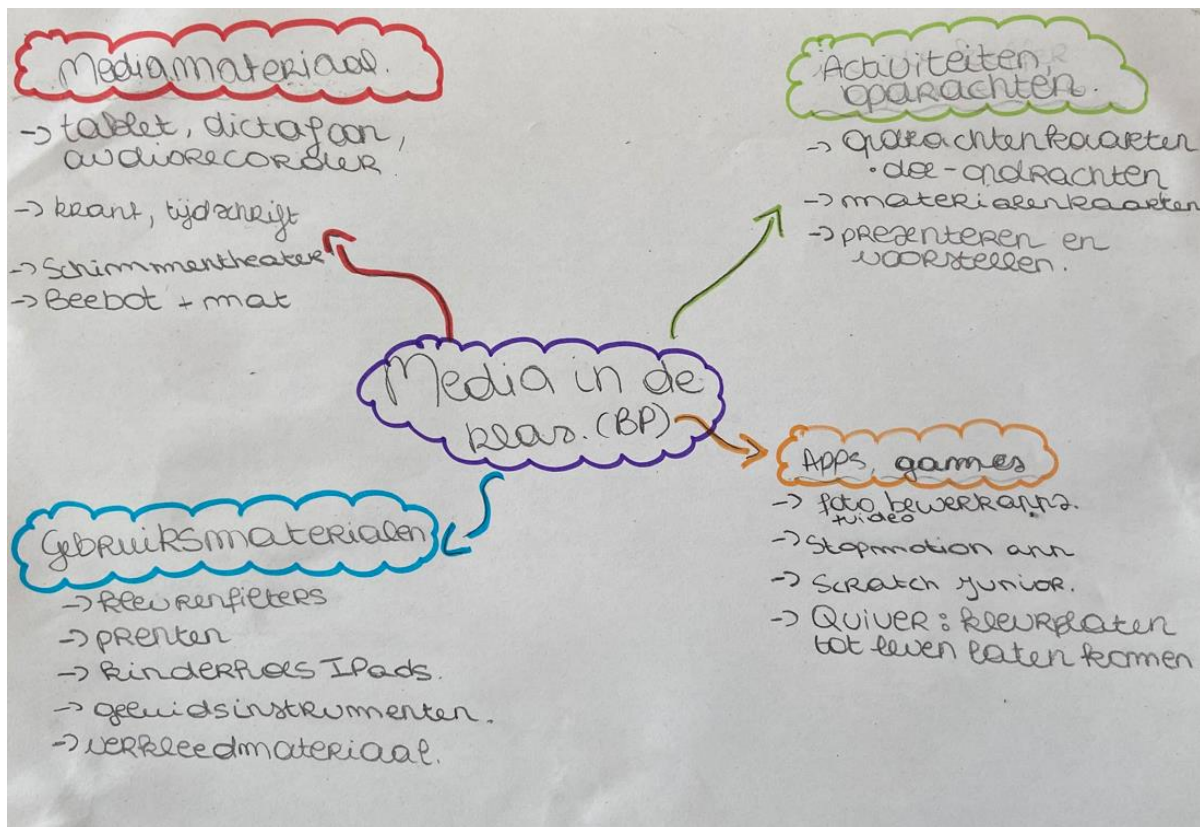 Mediamateriaal.
-> tablet, dictafoon,
audiorecorder
-> krant, tijdschrift
-> Schimmentheater
-> Beebot + mat
Activiteiten,
opdrachten.
-> opdrachtenkaarten
• doe-opdrachten
-> materialenkaarten
-> presenteren en
voorstellen.
Media in de
klas. (BP)
Apps, games
-> foto bewerkapps.
+video
-> Stopmotion app
-> Scratch junior.
-> Quiver: kleurplaten
tot leven laten komen
Gebruiksmaterialen
-> kleurenfilters
-> prenten
-> kinderhoes IPads.
-> geluidsinstrumenten.
-> verkleedmateriaal.